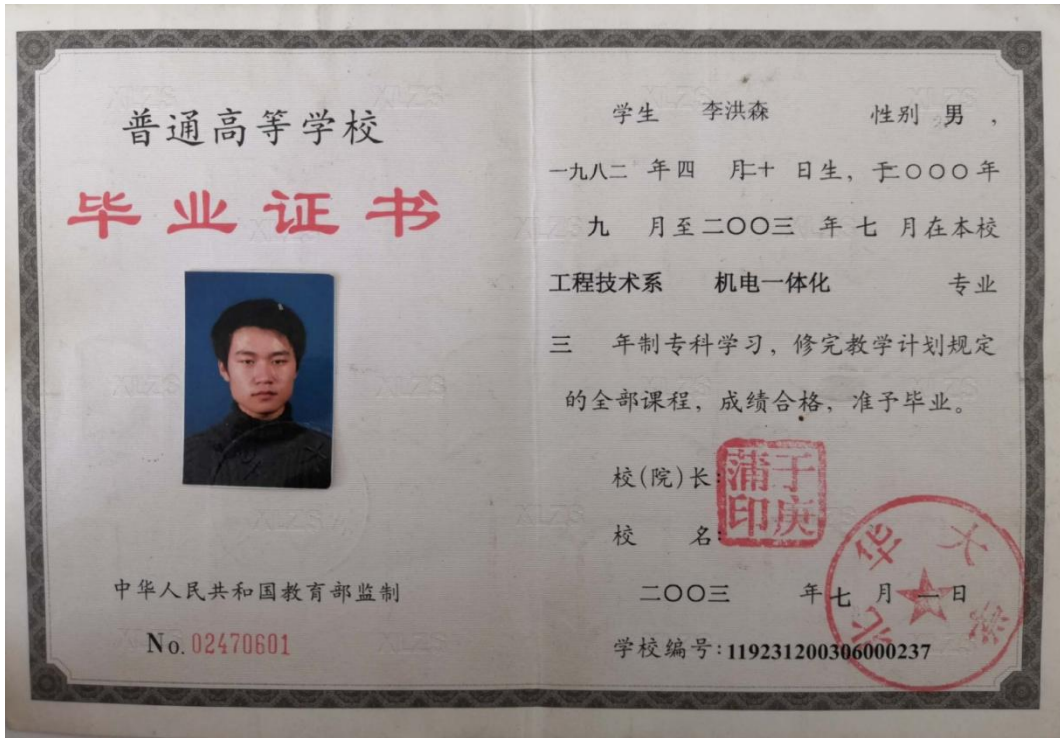 普通高等学校
毕业证书
中华人民共和国教育部监制
No. 02470601
学生 李洪森 性别 男,
一九八二 年四 月二十 日生, 于二〇〇〇年
九 月至二〇〇三 年 七 月在本校
工程技术系 机电一体化 专业
三 年制专科学习, 修完教学计划规定
的全部课程, 成绩合格, 准予毕业。
校(院)长:
于庚蒲印
校 名:
北华大学
二〇〇三 年七 月一日
学校编号:119231200306000237
XLZS